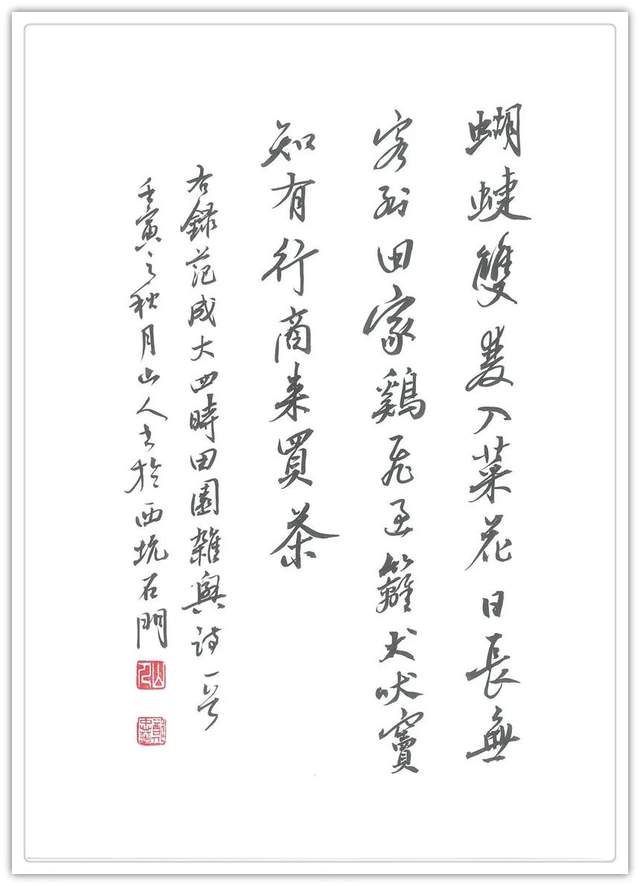 蝴蝶雙雙入菜花日長無
客到田家鷄飛過籬犬吠竇
知有行商來買茶
右錄范成大四時田園雜興詩一首
壬寅之秋月山人書於西坑石門
山人